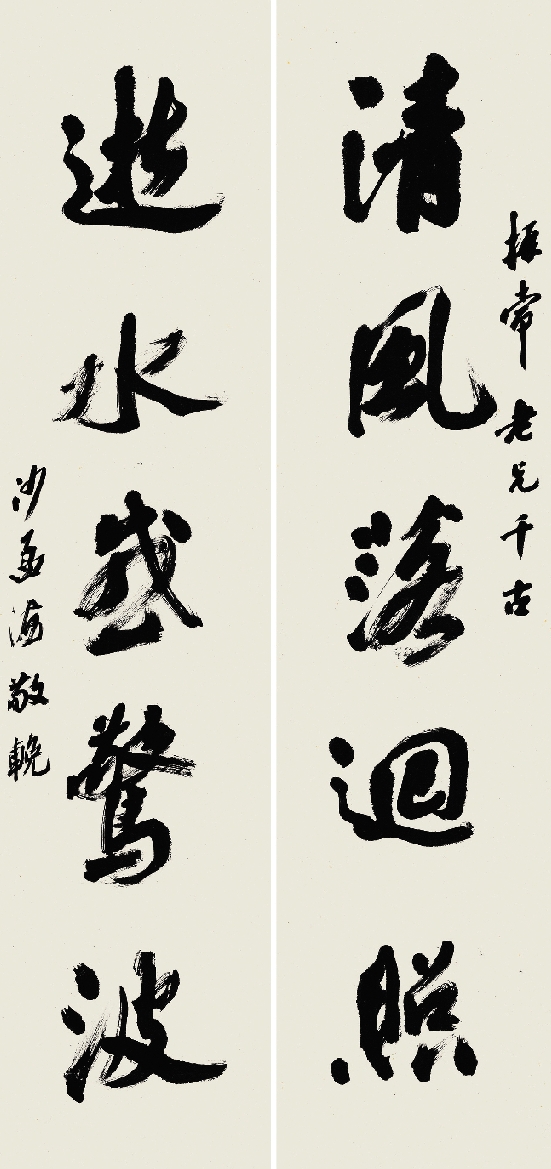 振常老兄千古
清風落迴照
逝水驚波
沙孟海敬輓